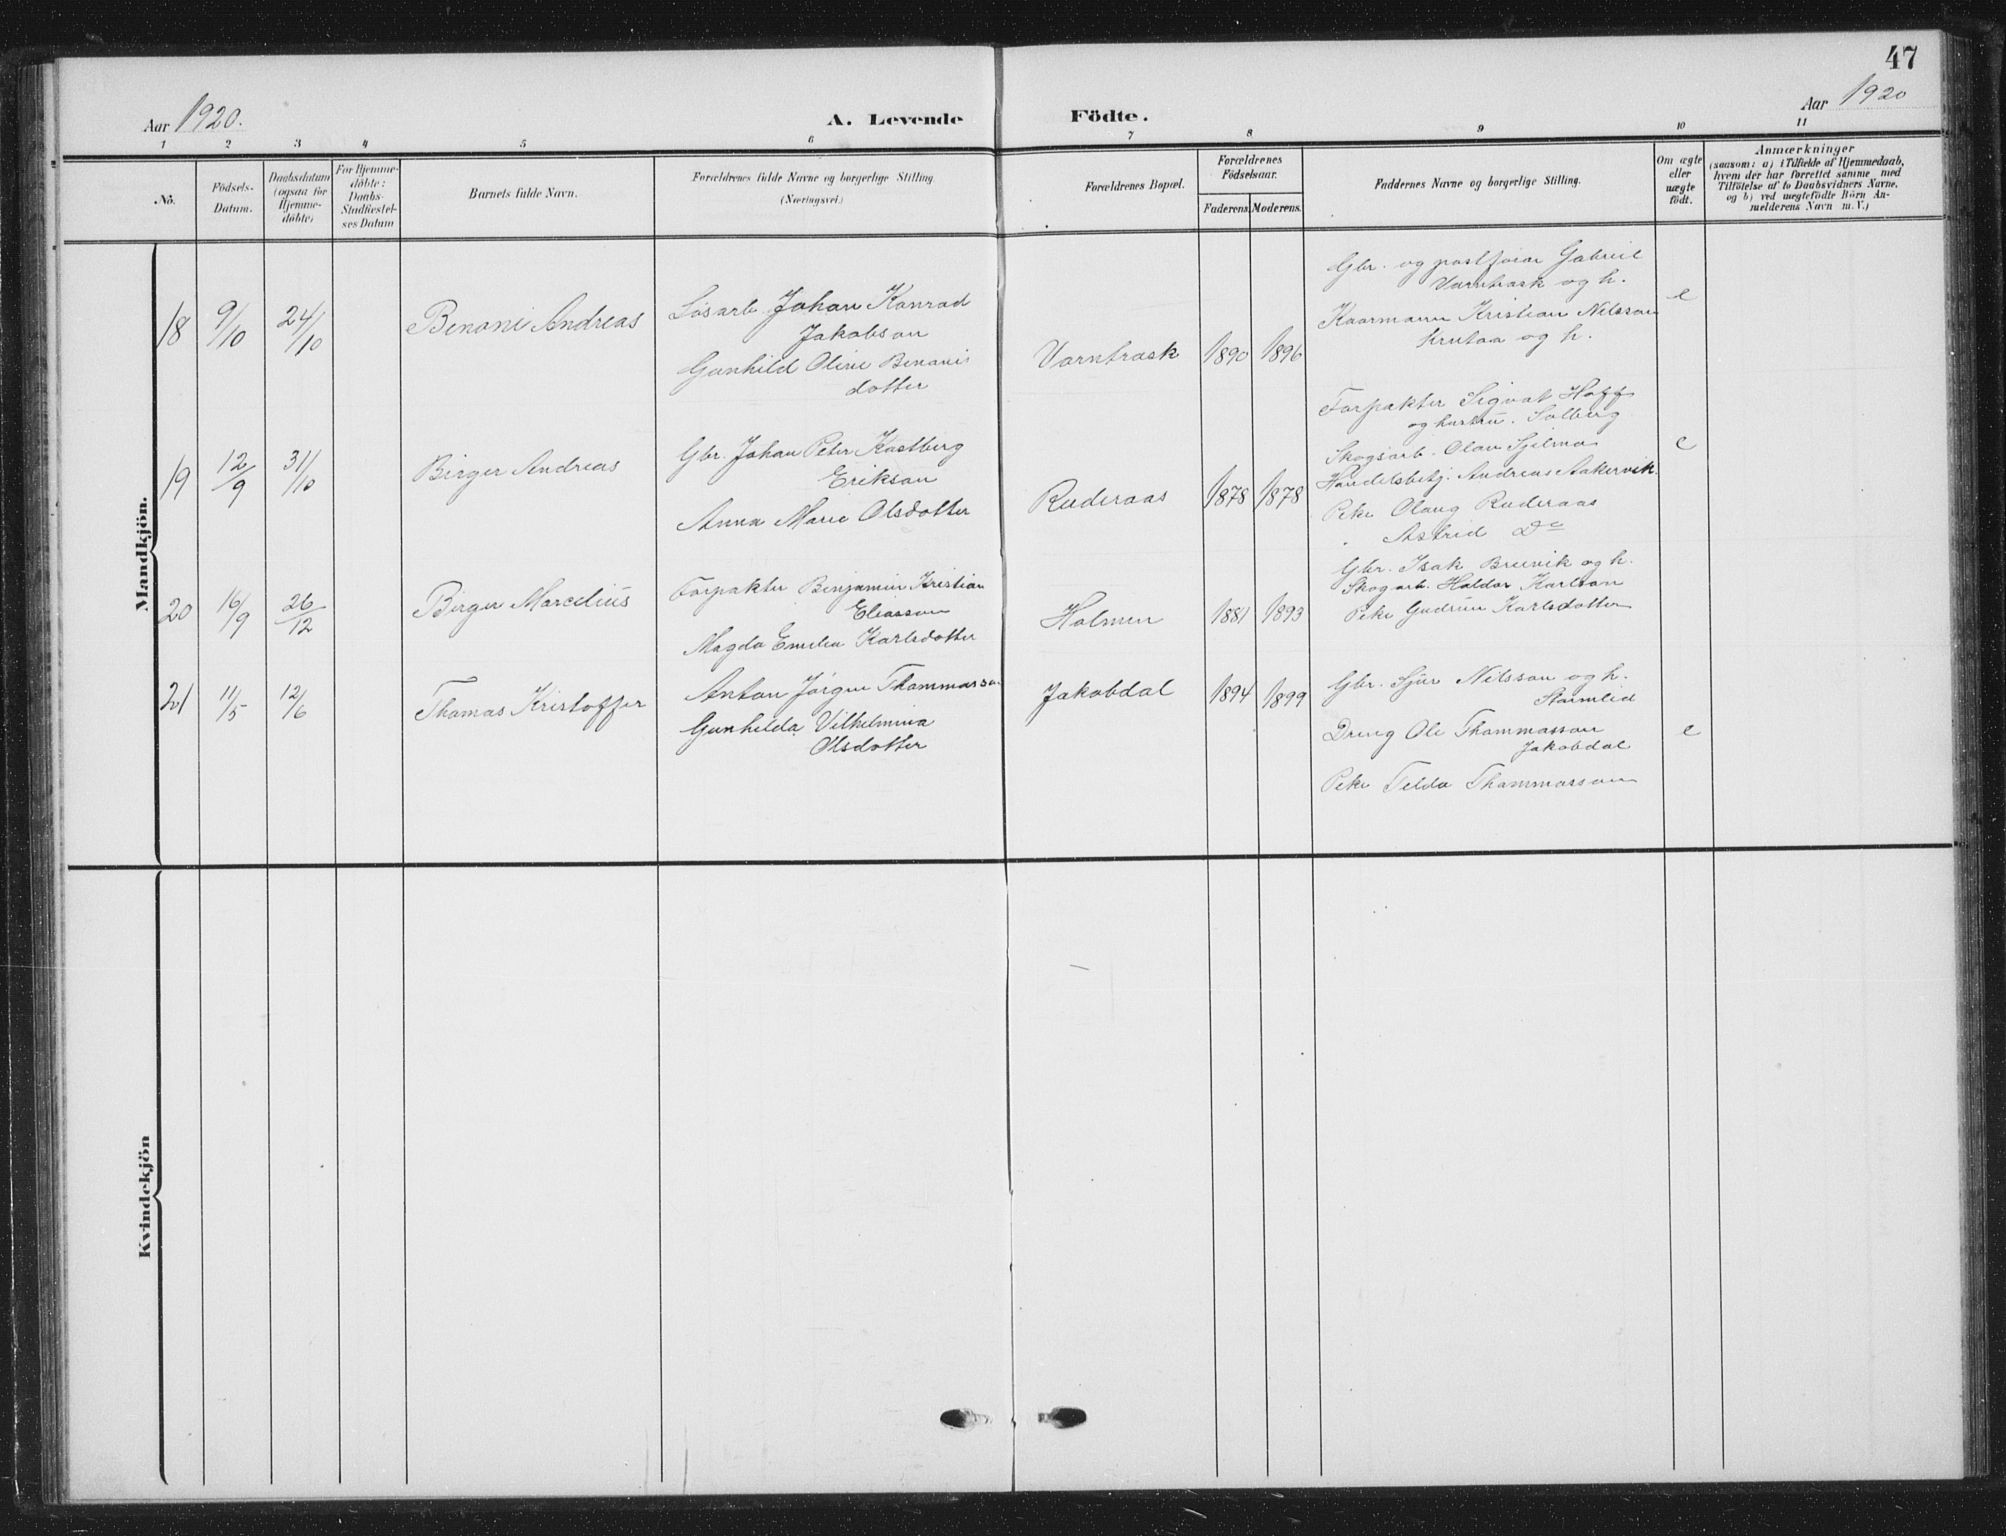 47
Aar 1920.
A. Levende Födte.
Aar 1920
1 2 3 4 5 6 7 8 9 10 11
No.
Födsels-
Datum.
Daabsdatum
(ogsaa for
Hjemme-
döbte)
For Hjemme-
döbte:
Daabs-
Stadfæstel-
ses Datum
Barnets fulde Navn.
Forældrenes fulde Navne og borgerlige Stilling
(Næringsvei.)
Forældrenes Bopæl.
Forældrenes
Födselsaar.
Faderens. Moderens.
Faddernes Navne og borgerlige Stilling.
Om ægte
eller
uægte
födt.
Anmærkninger
(saasom: a) i Tilfælde af Hjemmedaab,
hvem der har forrettet samme, med
Tilföielse af to Daabsvidners Navne,
og b) ved uægtefödte Börn An-
melderens Navn m. V.)
Mandkjön.
18
9/10
24/10
Benoni Andreas
Løsarb. Johan Konrad
Jakobson
Gunhild Oline Benoni
dotter
Varntrask
1890
1896
Gbr. og postfører Gabriel
Varntrask og h.
Kaarmann Kristian Nilsson
Krutaa og h.
e
19
12/9
31/10
Birger Andreas
Gbr. Johan Peter Kastberg
Erikson
Anna Marie Olsdotter
Ruderaas
1878
1878
Forpakter Sigvat Hoff
og hustru. Solberg
Skogsarb. Olav Sjelmo
Handelsbetj. Andreas Aakervik
Pike Olaug Ruderaas
" Astrid Do
e
20
16/9
26/12
Birger Marcelius
Forpakter Benjamin Kristian
Eliasson
Magda Emelia Karlsdotter
Holmen
1881
1893
Gbr. Isak Bruvik og h.
Skogarb. Haldor Karlson
Pike Gudrun Karlsdotter
21
11/5
12/6
Thomas Kristoffer
Anton Jørgen Thommasson
Gunhilda Vilhelmina
Olsdotter
Jakobdal
1894
1899
Gbr. Sjur Nilsson og h.
Stormlid
Dreng Ole Thommasson
Jakobdal
Pike Telda Thommasson
e
Kvindekjön